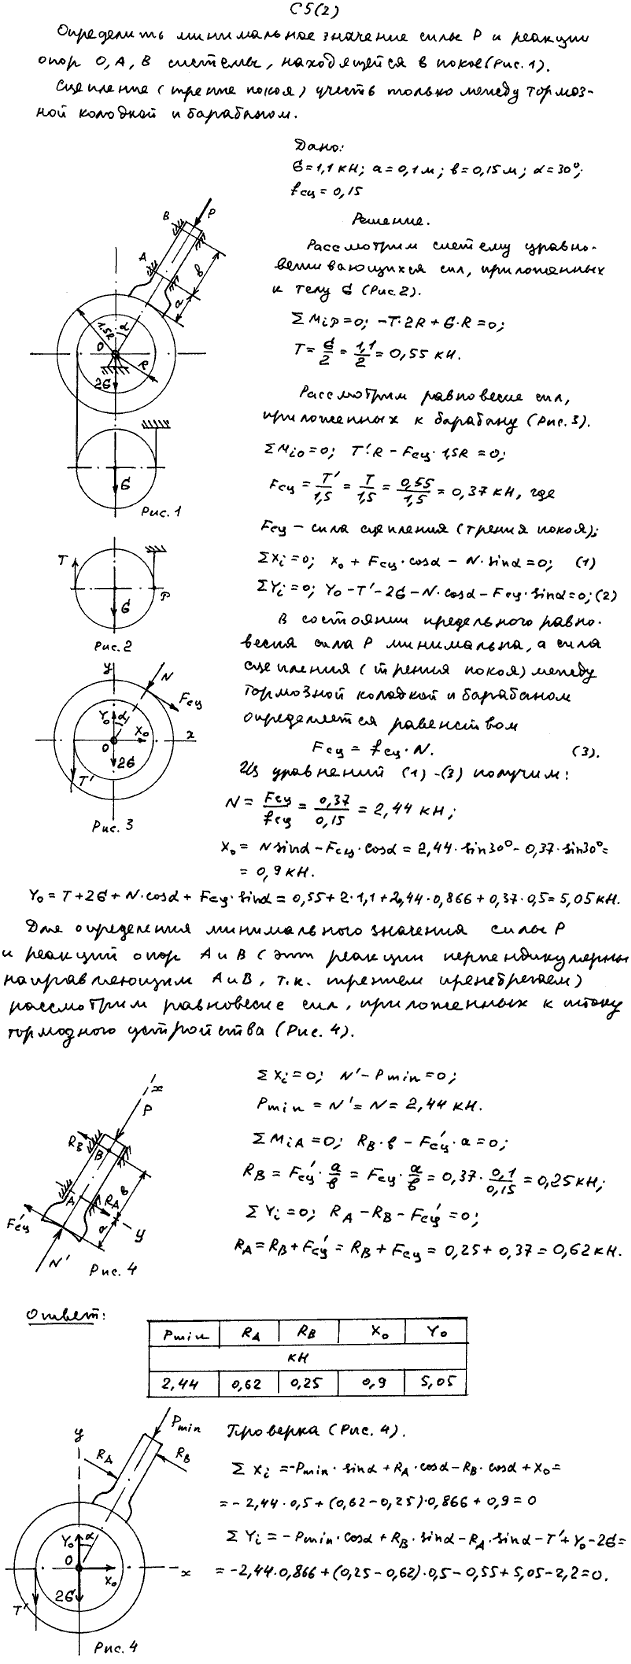 С5(2)
Определить минимальное значение силы P и реакции
опор O, A, B системы, находящейся в покое (Рис. 1).
Сцепление (трение покоя) учесть только между тормоз-
ной колодкой и барабаном.
Дано:
G = 1,1 кН; a = 0,1 м; в = 0,15 м; α = 30°;
fсц = 0,15
Решение.
Рассмотрим систему уравно-
вешивающихся сил, приложенных
к телу G (Рис. 2).
ΣMiP = 0; -T·2R + G·R = 0;
T = G/2 = 1,1/2 = 0,55 кН.
Рассмотрим равновесие сил,
приложенных к барабану (Рис. 3).
ΣMiO = 0; T'·R - Fсц·1,5R = 0;
Fсц = T'/1,5 = T/1,5 = 0,55/1,5 = 0,37 кН, где
Fсц - сила сцепления (трения покоя);
ΣXi = 0; X₀ + Fсц·cosα - N·sinα = 0; (1)
ΣYi = 0; Y₀ - T' - 2G - N·cosα - Fсц·sinα = 0; (2)
В состоянии предельного равно-
весия сила P минимальна, а сила
сцепления (трения покоя) между
тормозной колодкой и барабаном
определяется равенством
Fсц = fсц·N. (3).
Из уравнений (1)-(3) получим:
N = Fсц/fсц = 0,37/0,15 = 2,44 кН;
X₀ = N sinα - Fсц·cosα = 2,44·sin30° - 0,37·sin30° =
= 0,9 кН.
Y₀ = T + 2G + N·cosα + Fсц·sinα = 0,55 + 2·1,1 + 2,44·0,866 + 0,37·0,5 = 5,05 кН.
Для определения минимального значения силы P
и реакций опор A и B (эти реакции перпендикулярны
направляющим A и B, т.к. трением пренебрегаем)
рассмотрим равновесие сил, приложенных к штоку
тормозного устройства (Рис. 4).
B
P
A
в
a
1,5R
α
O
R
2G
G
Рис. 1
T
P
G
Рис. 2
y
N
Fсц
Y₀
α
X₀
x
O
2G
T'
Рис. 3
ΣXi = 0; N' - Pmin = 0;
Pmin = N' = N = 2,44 кН.
ΣMiA = 0; RB·в - F'сц·a = 0;
RB = F'сц·a/в = Fсц·a/в = 0,37·0,1/0,15 = 0,25 кН;
ΣYi = 0; RA - RB - F'сц = 0;
RA = RB + F'сц = RB + Fсц = 0,25 + 0,37 = 0,62 кН.
x
P
RB
B
в
A
RA
a
y
F'сц
N'
Рис. 4
Ответ:
Pmin RA RB X₀ Y₀
кН
2,44 0,62 0,25 0,9 5,05
Проверка (Рис. 4).
ΣXi = -Pmin·sinα + RA·cosα - RB·cosα + X₀ =
= -2,44·0,5 + (0,62 - 0,25)·0,866 + 0,9 = 0
ΣYi = -Pmin·cosα + RB·sinα - RA·sinα - T' + Y₀ - 2G =
= -2,44·0,866 + (0,25 - 0,62)·0,5 - 0,55 + 5,05 - 2,2 = 0.
y
Pmin
RA
RB
Y₀
α
O
X₀
x
2G
T'
Рис. 4